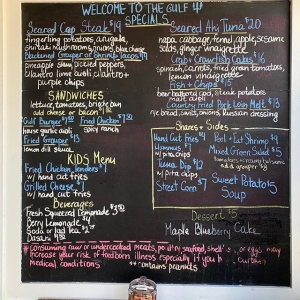 WELCOME TO THE GULF
SPECIALS
Seared Cap Steak $19
fingerling potatoes, arugula,
shiitaki mushrooms, onions, blue cheese
Blackened Grouper or Shrimp Tacos $18
pineapple slaw, pickled peppers,
cilantro lime aioli, cilantro +
purple chips
SANDWICHES
lettuce, tomatoes, brioche bun
add cheese or bacon
Gulf Burger Fried Chicken
house garlic aioli spicy ranch
Fried Grouper $13
lemon dill sauce
KIDS MENU
Fried Chicken Tenders
w/ hand cut fries
Grilled Cheese
w/ hand cut fries
Beverages
Fresh Squeezed Lemonade
Berry Lemonade
Soda or Iced Tea
Dasani
Seared Ahi Tuna $20
napa, cabbage, fennel, apple, sesame
salsa, ginger vinaigrette
Crab + Crawfish Cakes $16
spinach, carrots, fried green tomatoes,
lemon vinaigrette
Fish + Chips
beer battered cod, steak potatoes
malt aioli
Country Fried Pork Loin Melt $13
rye bread, swiss, onions, russian dressing
Shares + Sides
Hand Cut Fries $4
Hummus
w/ pita chips
Tuna Dip $12
w/ pita chips
Street Corn $7
Peel + Eat Shrimp
Mixed Green Salad
add a grouper
Sweet Potato
Soup $5
Dessert $5
Maple Blueberry Cake
*consuming raw or undercooked meats, poultry, seafood, shell or eggs may
increase your risk of food born illness especially if you
medical conditions
** contains peanuts